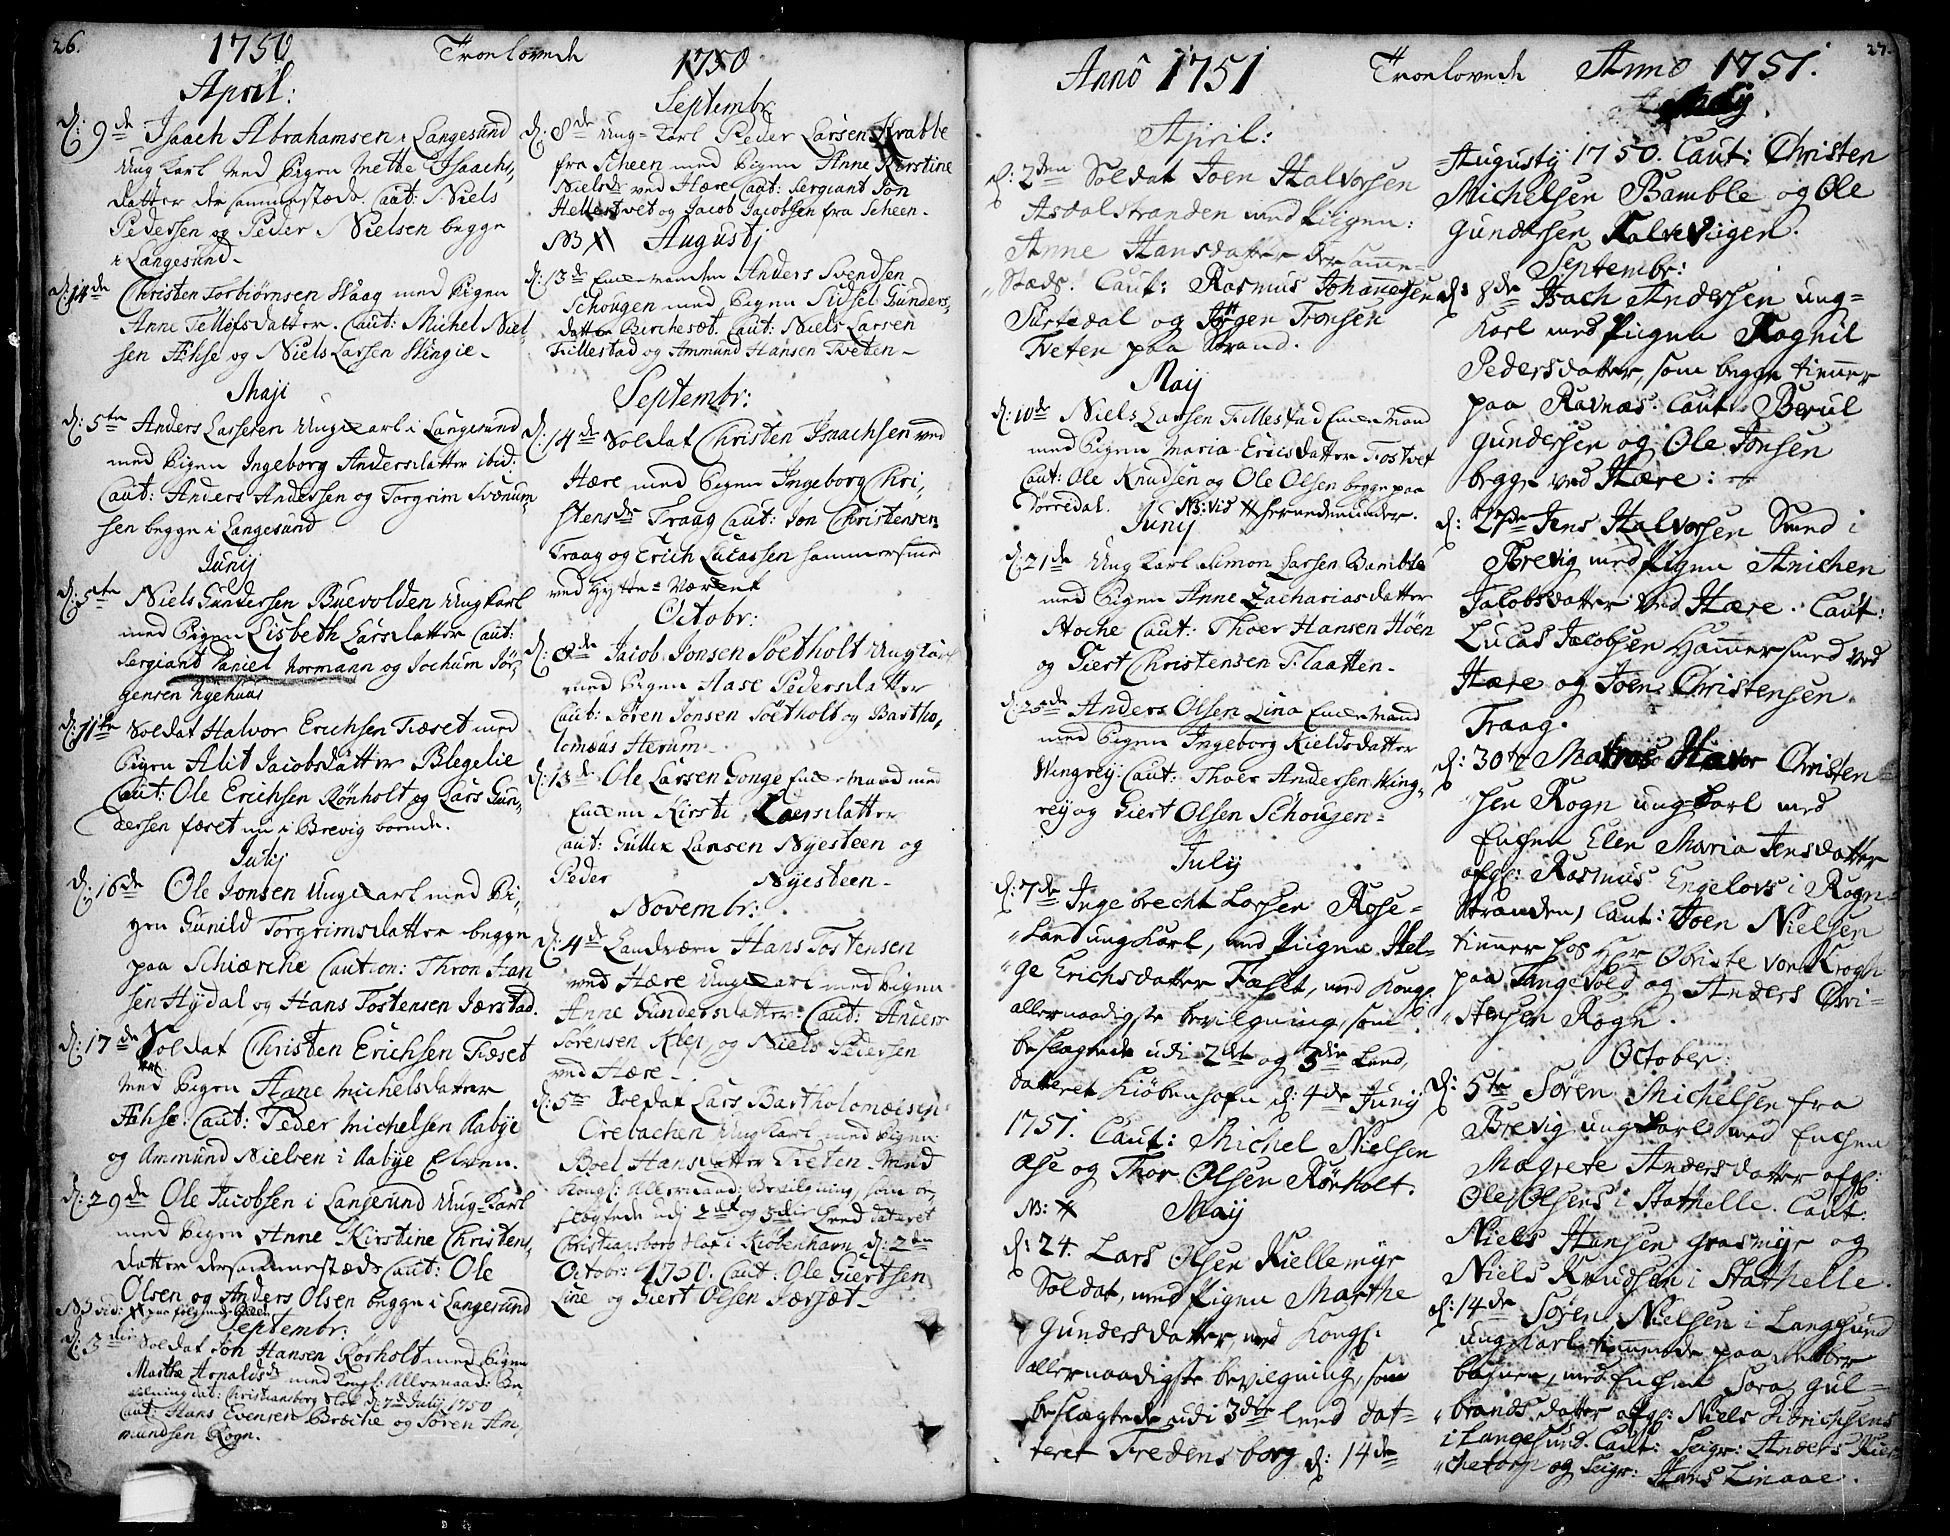 26.
1750 Troelovede
April:
d: 9de Isaach Abrahamsen i Langesund
Ung Karl med Pigen Mette Isaachs,
datter der sammestæds. Caut: Niels
Pedersen og Peder Nielsen begge
i Langesund.
d: 14de Christen Torbiørnsen Waag med Pigen
Anne Tellefsdatter. Caut: Michel Niel
sen Æhse og Niels Larsen Skingie.
Maji
d: 5te Anders Larsen Ungkarl i Langesund
med Pigen Ingeborg Andersdatter ibid:
Caut: Anders Andersen og Torgrim Svenum
sen begge i Langesund
Junij
d: 5te Niels Gundersen Buevolden Ungkarl
med Pigen Lisbeth Larsdatter Caut:
Sergiant Daniel Normann og Jochum Jör,
gensen Nyehuus
d: 11te Soldat Halvor Erichsen Fæset med
Pigen Alit Jacobsdatter Blegelie
Caut: Ole Erichsen Rønholt og Lars Gun,
dersen fæset nu i Brevig boende.
Julij
d: 16de Ole Jonsen Ungkarl med Pi,
gen Gunild Torgrimsdatter begge
paa Schiærche Caution: Thron Han
sen Hydal og Hans Tostensen Jærstad.
d: 17de Soldat Christen Erichsen Fæset
med Pigen Anne Michelsdatter
Æhse. Caut: Peder Michelsen Aabye
og Ammund Nielsen i Aabye Elven.
d: 29de Ole Jacobsen i Langesund Ung Karl
med Pigen Anne Kirstine Christens,
datter dersammestæds Caut: Ole
Olsen og Anders Olsen begge i Langesund
NB vid: # paa følgende Side
Septembr:
d: 3die Soldat Jon Hansen Rørholt med Pigen
Marthe Arnoldsd: med Kongl: Allernaad: Be
vilning dat: Christiansborg Slot d: 7de Julij 1750
Caut: Hans Evensen Bræche og Søren Am,
mundsen Rogn.
1750
Septembr
d: 8de Ung-Karl Peder Larsen Krabbe
fra Scheen med Pigen Anne Kirstine
Nielsdr ved Hære Caut: Sergiant Jon
Hellestvet og Jacob Jacobsen fra Scheen.
NB # Augustj
d: 13de Enkemanden Anders Svendsen
Schougen med Pigen Sidsel Gunders,
datter Birchesæt. Caut: Niels Larsen
Tvillestad og Ammund Hansen Tveten.
Septembr:
d: 14de Soldat Christen Isaachsen ved
Hære med Pigen Ingeborg Chri,
stensdr Traag Caut: Jon Christensen
Traag og Erich Lucassen Hammersmed
ved Hytte-Værket
Octobr:
d: 8de Jacob Jonsen Söetholt Ungkarl
med Pigen Aase Pedersdatter
Caut: Søren Jonsen Söetholt og Bartho,
lomæus Herum.
d: 13de Ole Larsen Gonge Enkemand med
Enken Kirsti Larsdatter
Caut: Gullik Larsen Nyesteen og
Peder Nyesteen.
Novembr:
d: 4de Landværn Hans Tostensen
ved Hære Ungkarl med Pigen
Anne Gundersdatter Caut: Anders
Sörensen Klep, og Niels Pedersen
ved Hære.
d: 5te Soldat Lars Bartholomæisen
Orebachen Ungkarl med Pigen
Boel Hansdatter Tveten. Med
Kongl: Allernaad: Bevilgning, som be,
slægtede udj 2det og 3die Leed dateret
Christiansborg Slot i Kiöbenhavn d: 2den
Octobr: 1750. Caut: Ole Giertsen
Line og Giert Olsen Iersæt.
27.
Anno 1751 Troelovede Anno 1751.
April:
d: 2den Soldat Joen Halvorsen
Asdalstranden med Pigen:
Anne Hansdatter dersamme
Stæds. Caut: Rasmus Johannesen
Surtedal og Jörgen Tronsen
Tveten paa Strand.
Maij
d: 10de Niels Larsen Tillestad Enkemand
med Pigen Maria Ericsdatter Tostvet
Caut: Ole Knudsen og Ole Olsen begge paa
Dörredal. NB: vid # herunderunder.
Junij
d: 21de Ung Karl Simon Larsen Bamble
med Pigen Anne Zachariasdatter
Stoche Caut: Thoer Hansen Höen
og Giert Christensen Plaatten.
d: 25de Anders Olsen Lina Enkemand
med Pigen Ingeborg Kieldsdatter
Wingrej: Caut: Thoer Andersen Wing,
rej og Giert Olsen Schougen.
July
d: 7de Ingebrecht Larsen Rose-
land ungkarl, med Pigen Hel-
ge Erichsdatter Fæset, med Kongl:
allernaadigste bevilgning, som
beslægtede udi 2det og 3die Leed,
dateret Kiöbenhafn d: 4de Junij
1751. Caut: Michel Nielsen
Æse og Thor Olsen Rörholt.
NB: # Maij
d: 24. Lars Olsen Kiellemyr
Soldat, med Pigen Marthe
Gundersdatter, med Kongl:
allernaadigste bevilgning, som
beslægtede udi 3die leed dat-
teret Fredensborg d: 14de
Augustij 1750. Caut: Christen
Michelsen Bamble og Ole
Gundersen Kalvevigen.
Septembr:
d: 8de Isach Andersen ung-
karl med Pigen Rognil
Pedersdatter, som begge tienner
paa Ravnæs. Caut: Berul
Gundersen og Ole Jonsen
begge ved Hære:
d: 27de Jens Halvorsen Sund i
Brevig med Pigen Anichen
Jacobsdatter ved Hære. Caut:
Lucas Jacobsen Hammersmed ved
Hære og Joen Christensen
Traag.
d: 30te Matros Havor Christen
sen Rogn ungkarl med
Enchen Elen Maria Jensdatter
afgl: Rasmus Engelovs i Rogn
stranden, Caut: Joen Nielsen
tienner hos Hr Obriste von Krogh
paa Tangevold og Anders Chri-
stensen Rogn.
October:
d: 5te Sören Michelsen fra
Brevig ungkarl med Enchen
Magrete Andersdatter afgl:
Ole Olsens i Stathelle. Caut:
Niels Hansen Grasmyr og
Niels Knudsen i Stathelle.
d: 14de Sören Nielsen i Langesund
ungkarl
med Enchen Sara Gul-
brandsdatter afgl: Niels Didrichsens
i Langesund. Caut: Seigr: Anders Kier
chetorp og Seigr: Hans Linaae.